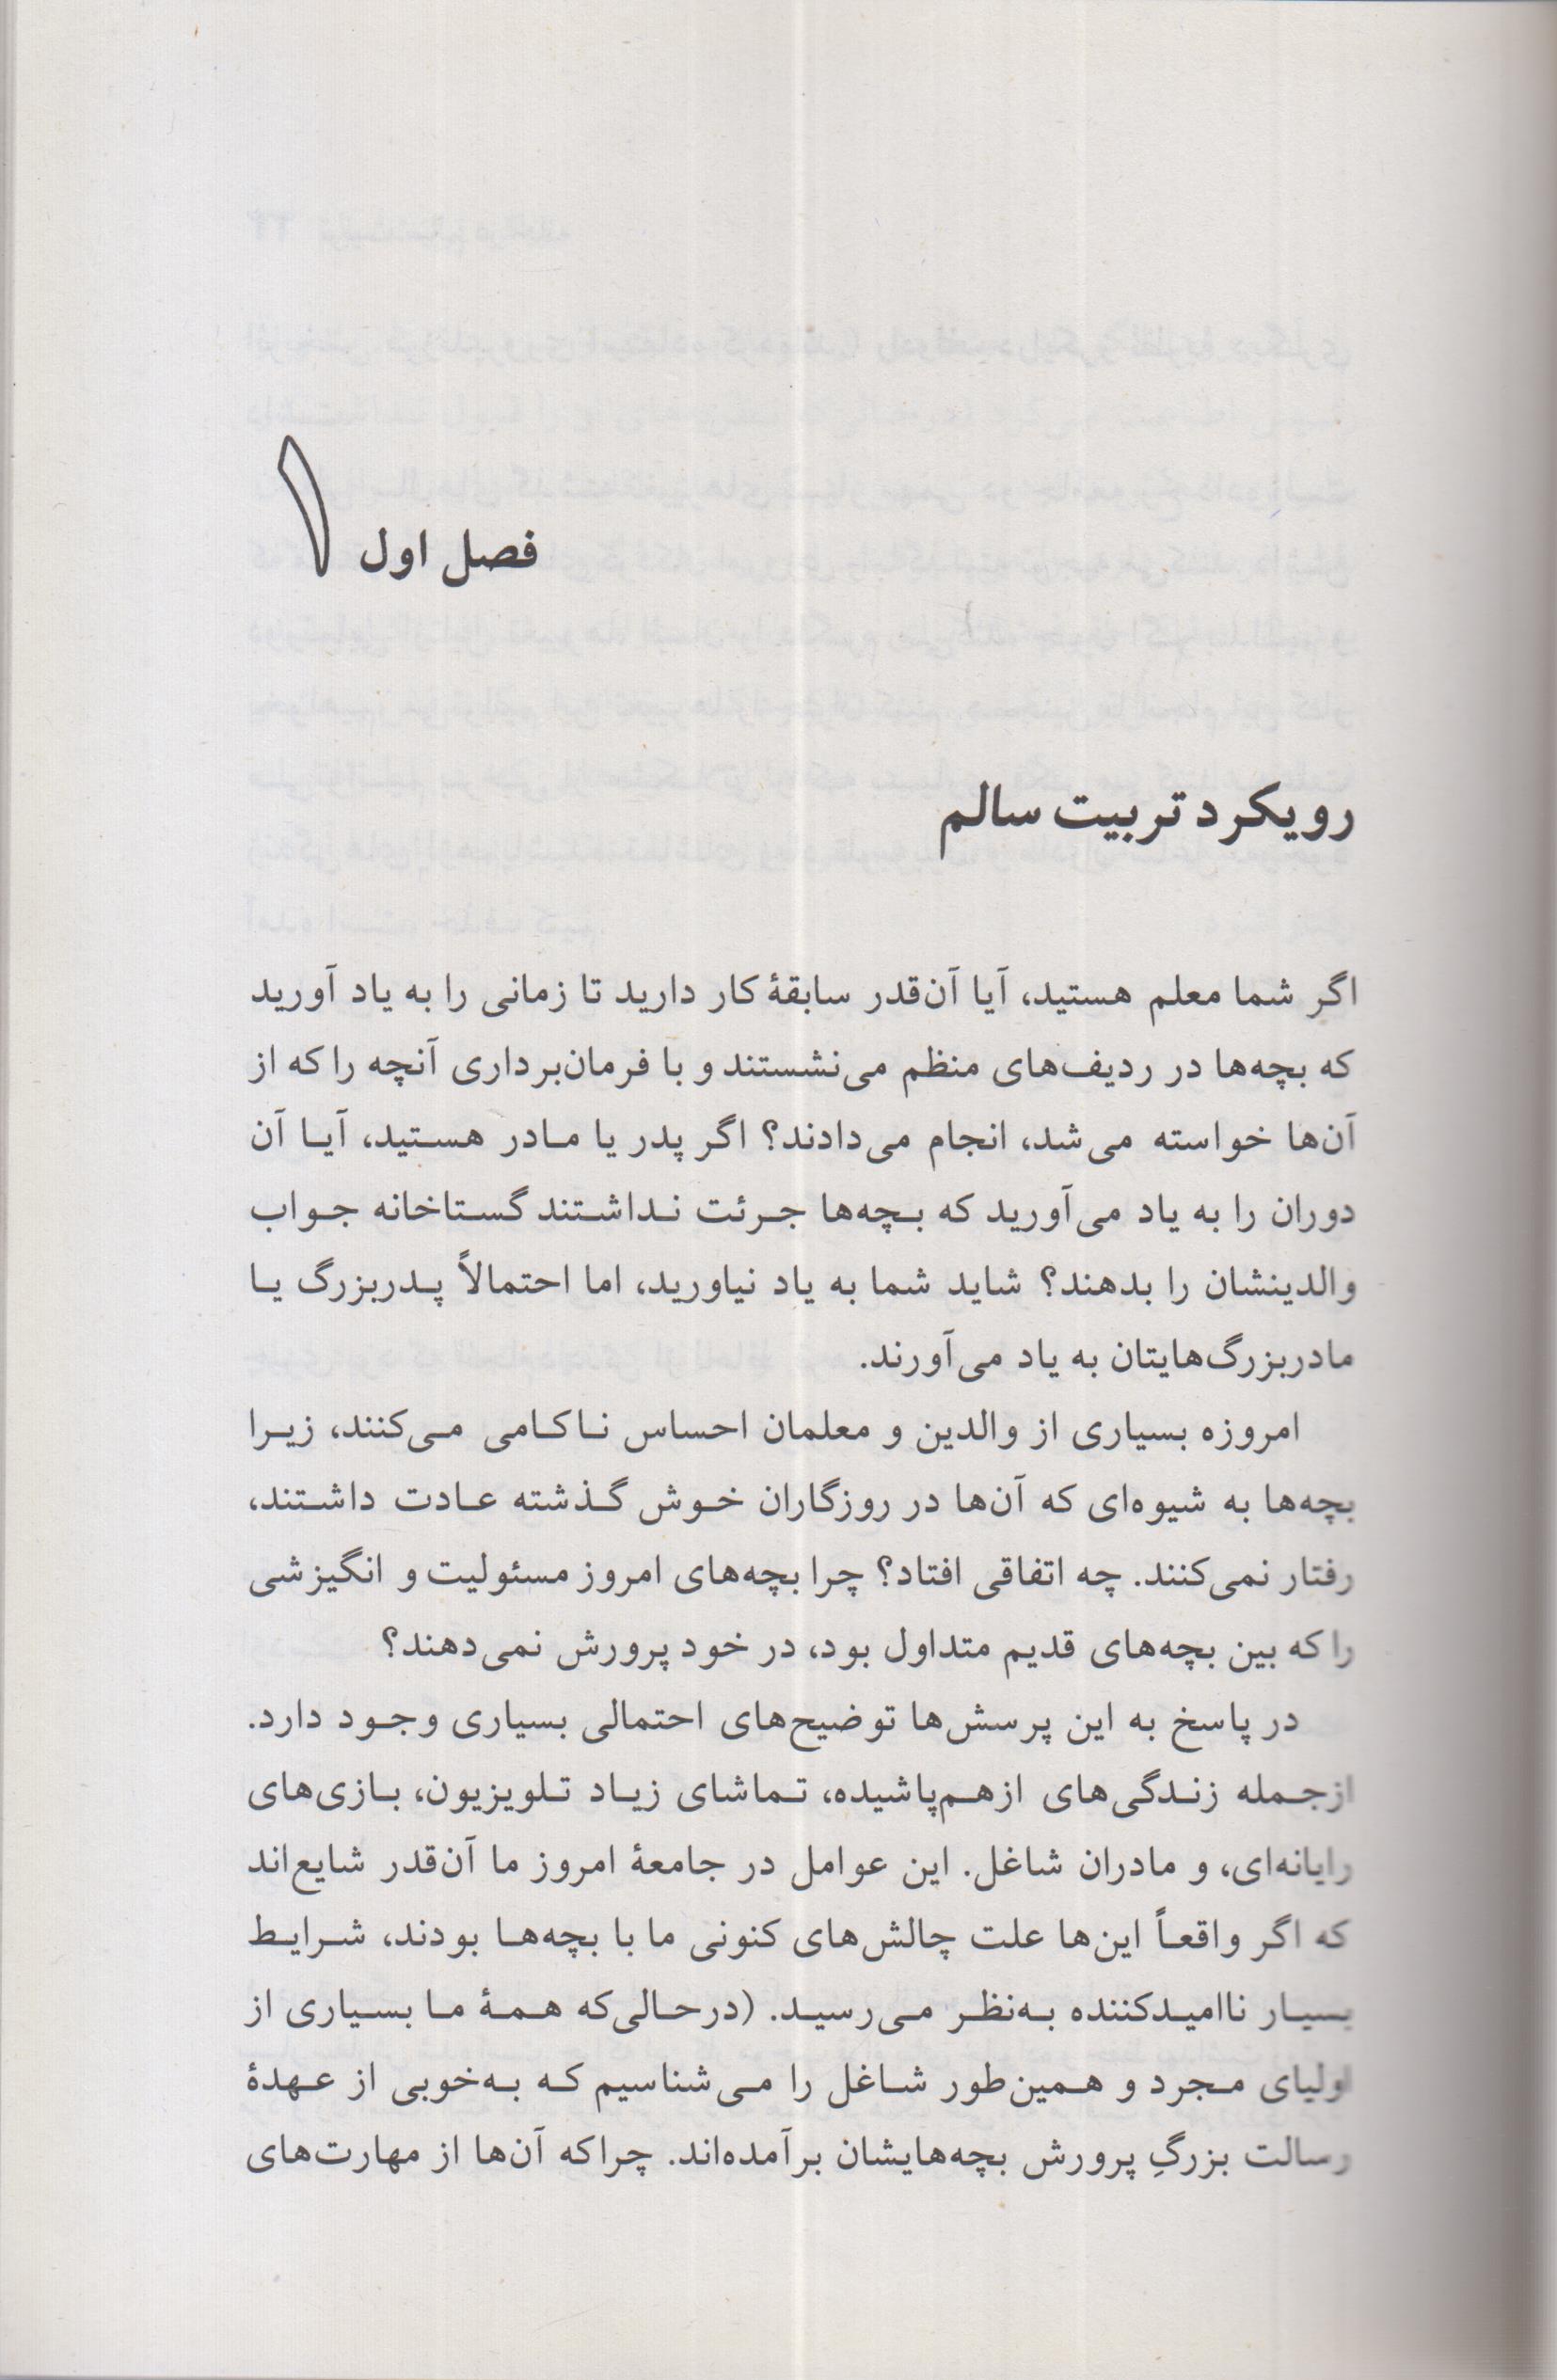 فصل اول ۱
رویکرد تربیت سالم
اگر شما معلم هستید، آیا آن‌قدر سابقهٔ کار دارید تا زمانی را به یاد آورید
که بچه‌ها در ردیف‌های منظم می‌نشستند و با فرمان‌برداری آنچه را که از
آن‌ها خواسته می‌شد، انجام می‌دادند؟ اگر پدر یا مادر هستید، آیا آن
دوران را به یاد می‌آورید که بچه‌ها جرئت نداشتند گستاخانه جواب
والدینشان را بدهند؟ شاید شما به یاد نیاورید، اما احتمالاً پدربزرگ یا
مادربزرگ‌هایتان به یاد می‌آورند.
امروزه بسیاری از والدین و معلمان احساس ناکامی می‌کنند، زیرا
بچه‌ها به شیوه‌ای که آن‌ها در روزگاران خوش گذشته عادت داشتند،
رفتار نمی‌کنند. چه اتفاقی افتاد؟ چرا بچه‌های امروز مسئولیت و انگیزشی
را که بین بچه‌های قدیم متداول بود، در خود پرورش نمی‌دهند؟
در پاسخ به این پرسش‌ها توضیح‌های احتمالی بسیاری وجود دارد.
ازجمله زندگی‌های ازهم‌پاشیده، تماشای زیاد تلویزیون، بازی‌های
رایانه‌ای، و مادران شاغل. این عوامل در جامعهٔ امروز ما آن‌قدر شایع‌اند
که اگر واقعاً این‌ها علت چالش‌های کنونی ما با بچه‌ها بودند، شرایط
بسیار ناامیدکننده به‌نظر می‌رسید. (درحالی‌که همهٔ ما بسیاری از
اولیای مجرد و همین‌طور شاغل را می‌شناسیم که به‌خوبی از عهدهٔ
رسالت بزرگِ پرورش بچه‌هایشان برآمده‌اند. چراکه آن‌ها از مهارت‌های